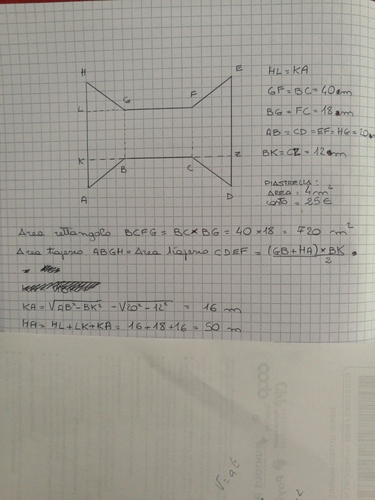 H
E
G
F
L
K
B
C
Z
A
D
HL = KA
GF = BC = 40 m
BG = FC = 18 m
AB = CD = EF = HG = 20 m
BK = CZ = 12 m
PIASTRELLA:
AREA = 4 m²
COSTO = 25 €
Area rettangolo BCFG = BC × BG = 40 × 18 = 720 m²
Area trapezio ABGH = Area trapezio CDEF = (GB + HA) × BK / 2 =
=
KA = √AB² - BK² = √20² - 12² = 16 m
HA = HL + LK + KA = 16 + 18 + 16 = 50 m